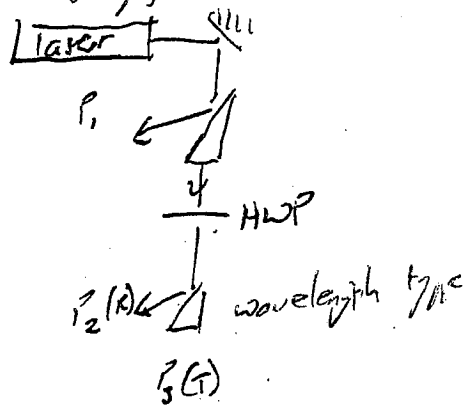 laser
P₁
HWP
P₂(R) wavelength type
P₃(T)